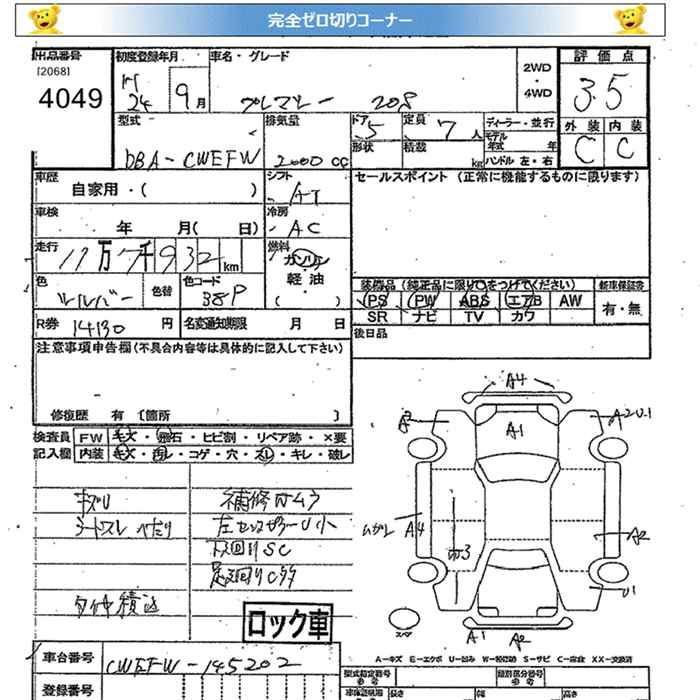 完全ゼロ切りコーナー
出品番号 初度登録年月 車名・グレード 評価点
[2068] 2WD・4WD
4049 H24 9月 プレマシー 20S 3.5
型式 排気量 ドア 定員 ディーラー・並行 外装 内装
5 7人 モデル年式 年 C C
DBA-CWEFW 2000cc 形状 積載 kg ハンドル 左・右
車歴 シフト セールスポイント(正常に機能するものに限ります)
自家用・( ) AT
車検 冷房
年 月( 日) AC
走行 燃料
11万7千932km ガソリン
軽・油
色 色替 色コード ( ) 装備品(純正品に限り○をつけてください) 新車保証書
シルバー 38P PS PW ABS エアB AW 有・無
SR ナビ TV カワ
R券 14130円 名変通知期限 月 日 後日品
注意事項申告欄(不具合内容等は具体的に記入して下さい)
修復歴 有 〔箇所 〕
検査員 FW キズ・飛石・ヒビ割・リペア跡・×要
記入欄 内装 キズ・汚レ・コゲ・穴・スレ・キレ・破レ
A4
A2 A1 A2U1
キズU 補修ムラ
シートスレ へたり 左センターピラーU小
ムカレ A4 A2
下回りSC
足回りC多 U1
タイヤ積込
ロック車
スペア A1 A2
A-キズ E-エクボ U-凹み W-補修跡 S-サビ C-腐食 XX-交換済
車台番号 CWEFW-145202
型式指定番号 類別区分番号
登録番号 車検証期限 長さ 幅 高さ